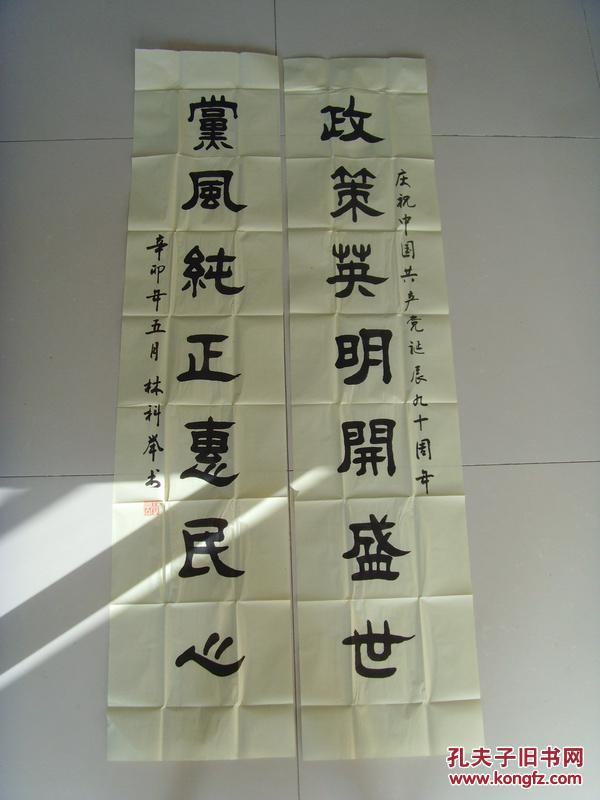 庆祝中国共产党诞辰九十周年
政策英明開盛世
黨風純正惠民心
辛卯年五月 林科举书
孔夫子旧书网
www.kongfz.com